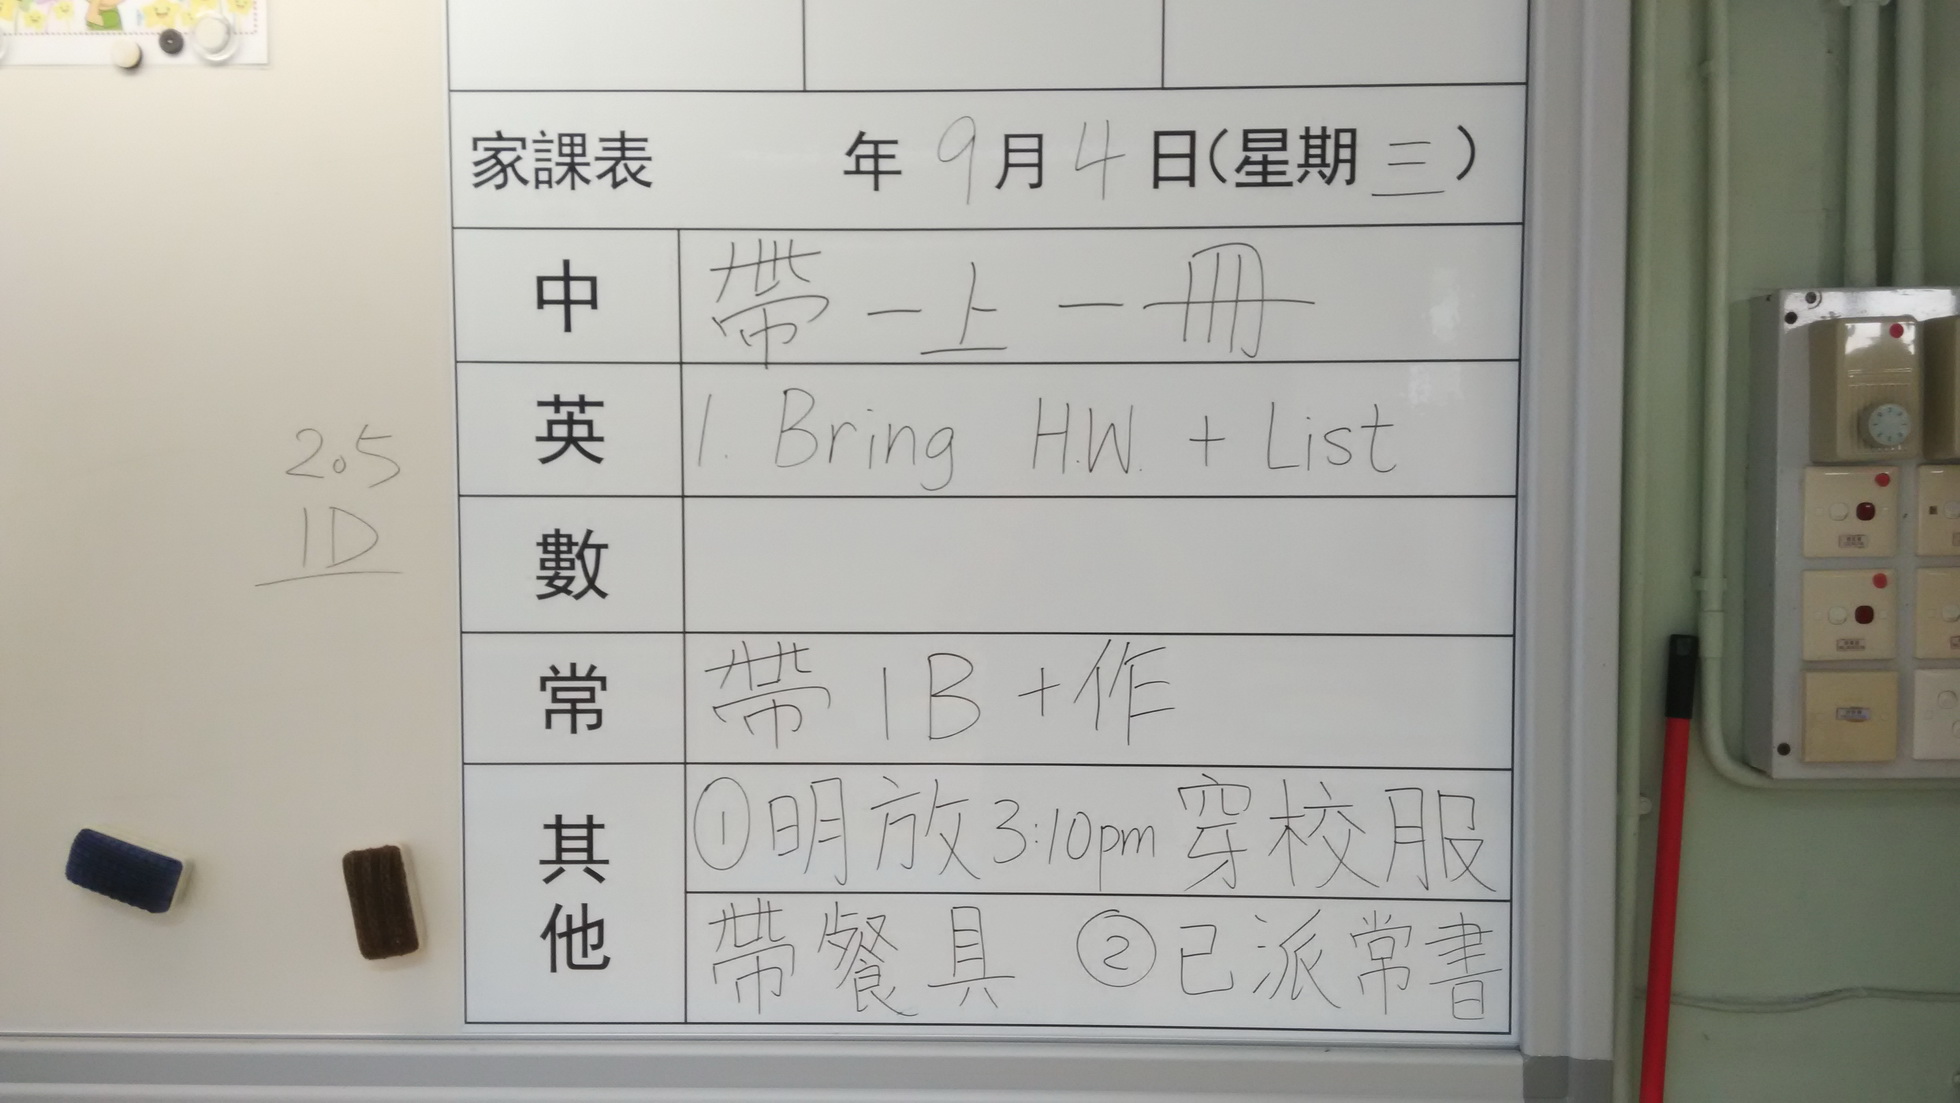 家課表 年 9 月 4 日(星期三)
中 帶一上一冊
英 1. Bring H.W. + List
數
常 帶 1B+作
其他 ①明放3:10pm 穿校服
帶餐具 ②已派常書
2.5
1D